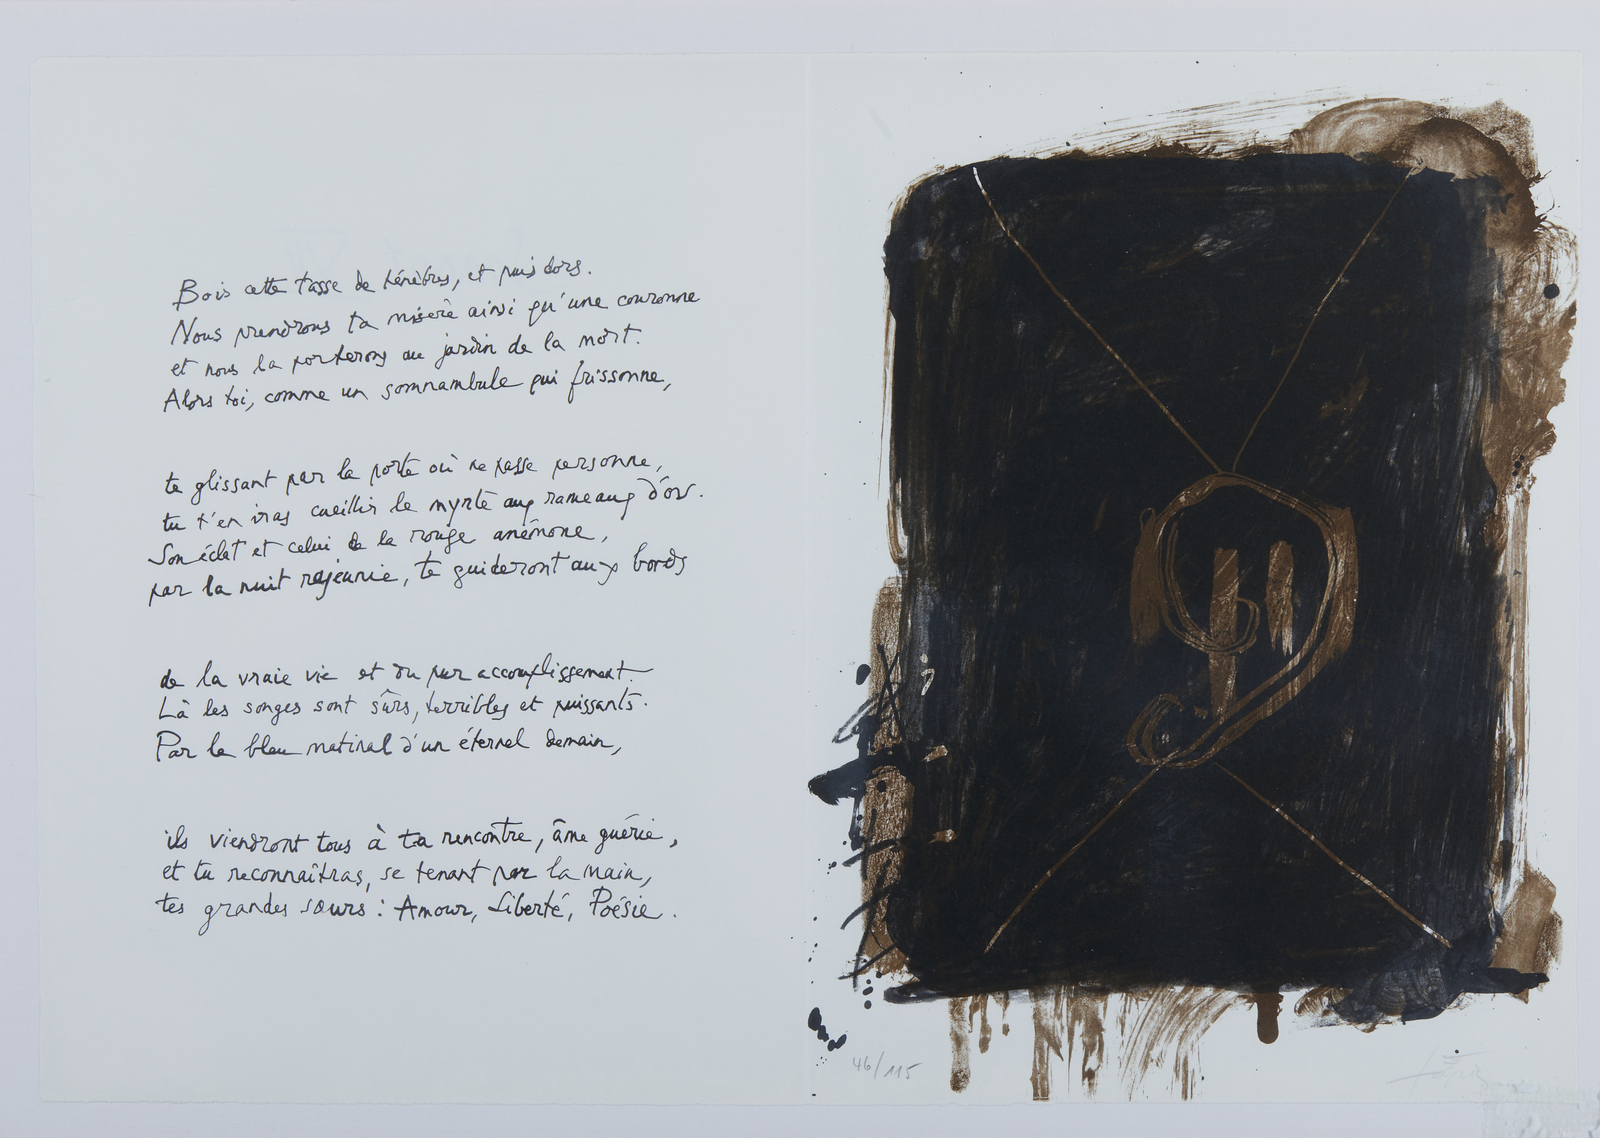 Bois cette tasse de ténèbres, et puis dors.
Nous prendrons ta misère ainsi qu'une couronne
et nous la porterons au jardin de la mort.
Alors toi, comme un somnambule qui frissonne,
te glissant par la porte où ne passe personne,
tu t'en iras cueillir le myrte aux rameaux d'or.
Son éclat et celui de la rouge anémone,
par la nuit rajeunie, te guideront aux bords
de la vraie vie et du pur accomplissement.
Là les songes sont sûrs, terribles et puissants.
Par le bleu matinal d'un éternel demain,
ils viendront tous à ta rencontre, âme guérie,
et tu reconnaîtras, se tenant par la main,
tes grandes sœurs : Amour, Liberté, Poésie.
46/115
Tàpies